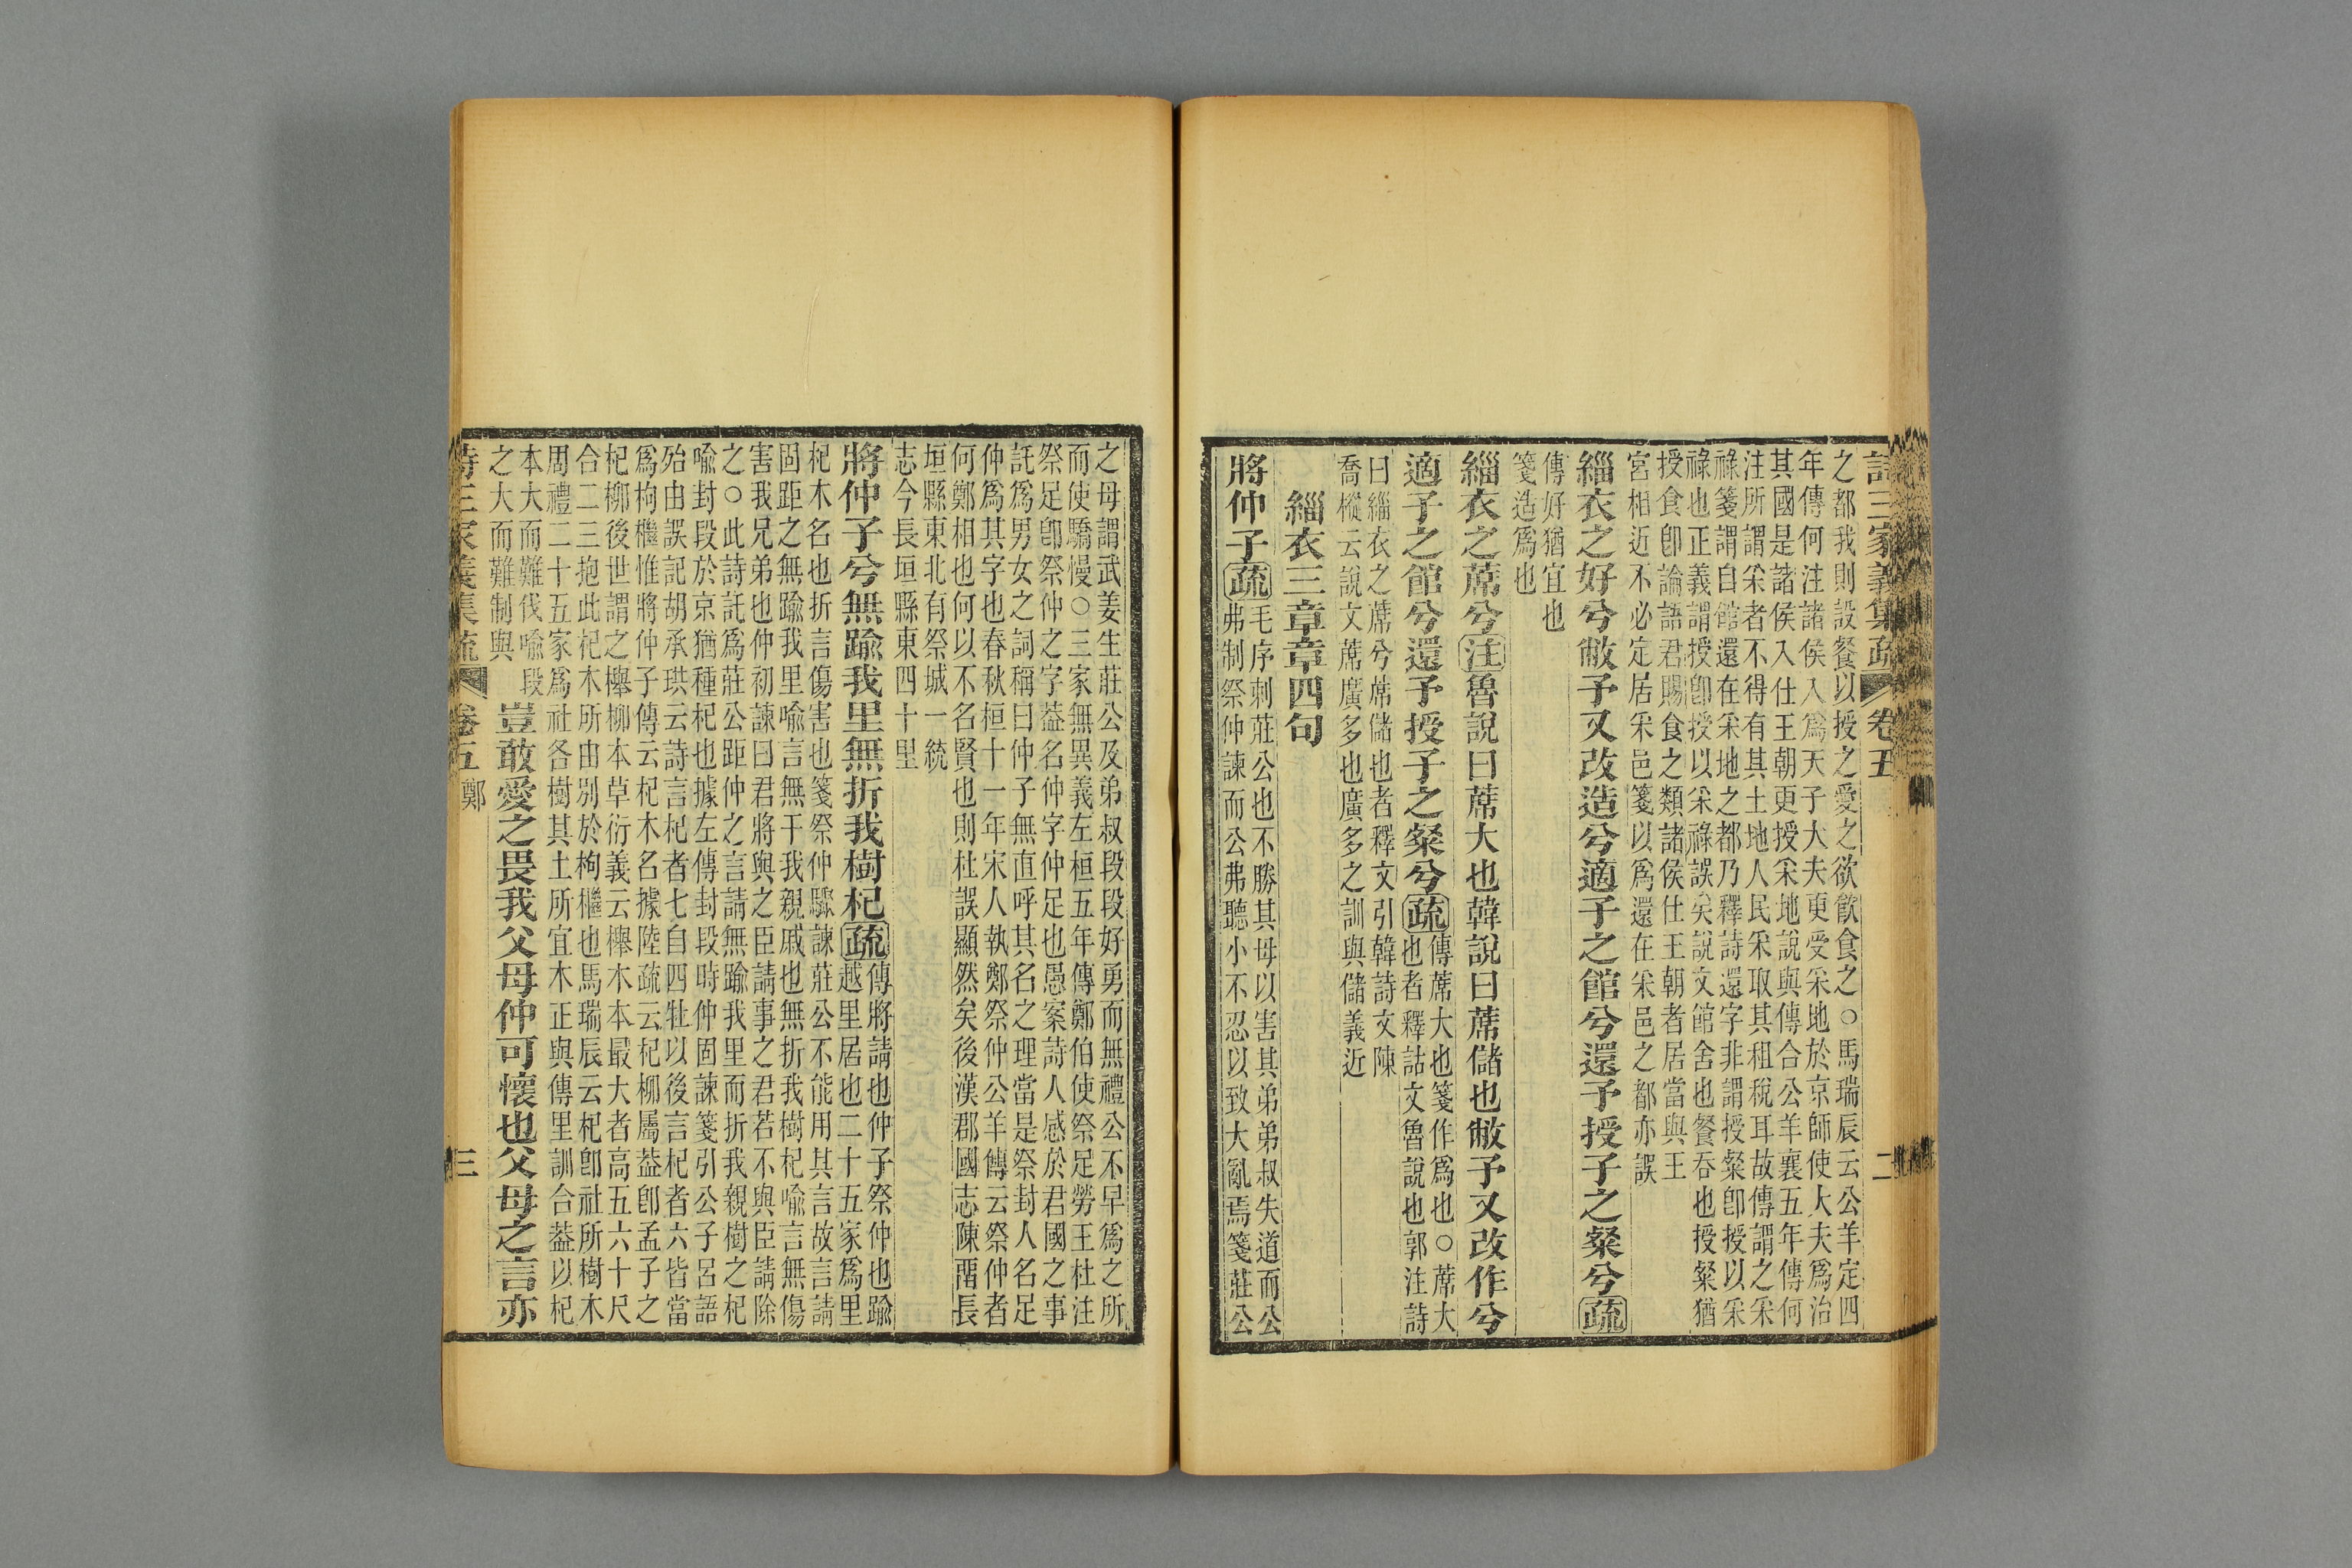 詩三家義集疏 卷五 二
之都我則設餐以授之愛之欲飮食之○馬瑞辰云公羊定四
年傳何注諸侯入爲天子大夫更受采地於京師使大夫爲治
其國是諸侯入仕王朝更授采地說與傳合公羊襄五年傳何
注所謂采者不得有其土地人民采取其租稅耳故傳謂之采
祿箋謂自館還在采地之都乃釋詩還字非謂授粲卽授以采
祿也正義謂授卽授以采祿誤矣說文館舍也餐吞也授粲猶
授食卽論語君賜食之類諸侯仕王朝者居當與王
宮相近不必定居采邑箋以爲還在采邑之都亦誤
緇衣之好兮敝予又改造兮適子之館兮還予授子之粲兮疏
傳好猶宜也
箋造爲也
緇衣之蓆兮注魯說曰蓆大也韓說曰蓆儲也敝予又改作兮
適子之館兮還予授子之粲兮疏傳蓆大也箋作爲也○蓆大
也者釋詁文魯說也郭注詩
曰緇衣之蓆兮蓆儲也者釋文引韓詩文陳
喬樅云說文蓆廣多也廣多之訓與儲義近
緇衣三章章四句
將仲子疏毛序刺莊公也不勝其母以害其弟弟叔失道而公
弗制祭仲諫而公弗聽小不忍以致大亂焉箋莊公
之母謂武姜生莊公及弟叔段段好勇而無禮公不早爲之所
而使驕慢○三家無異義左桓五年傳鄭伯使祭足勞王杜注
祭足卽祭仲之字葢名仲字仲足也愚案詩人感於君國之事
託爲男女之詞稱曰仲子無直呼其名之理當是祭封人名足
仲爲其字也春秋桓十一年宋人執鄭祭仲公羊傳云祭仲者
何鄭相也何以不名賢也則杜誤顯然矣後漢郡國志陳畱長
垣縣東北有祭城一統
志今長垣縣東四十里
將仲子兮無踰我里無折我樹杞疏傳將請也仲子祭仲也踰
越里居也二十五家爲里
杞木名也折言傷害也箋祭仲驟諫莊公不能用其言故言請
固距之無踰我里喻言無干我親戚也無折我樹杞喻言無傷
害我兄弟也仲初諫曰君將與之臣請事之君若不與臣請除
之○此詩託爲莊公距仲之言請無踰我里而折我親樹之杞
喻封段於京猶種杞也據左傳封段時仲固諫箋引公子呂語
殆由誤記胡承珙云詩言杞者七自四牡以後言杞者六皆當
爲枸檵惟將仲子傳云杞木名據陸疏云杞柳屬葢卽孟子之
杞柳後世謂之櫸柳本草衍義云櫸木本最大者高五六十尺
合二三抱此杞木所由別於枸檵也馬瑞辰云杞卽社所樹木
周禮二十五家爲社各樹其土所宜木正與傳里訓合葢以杞
本大而難伐喻段
之大而難制與
豈敢愛之畏我父母仲可懷也父母之言亦
詩三家義集疏 卷五 鄭 三